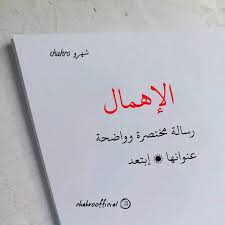 شهرو chahro
الإهمال
رسالة مختصرة وواضحة
عنوانها ◉ إبتعد
chahroofficial